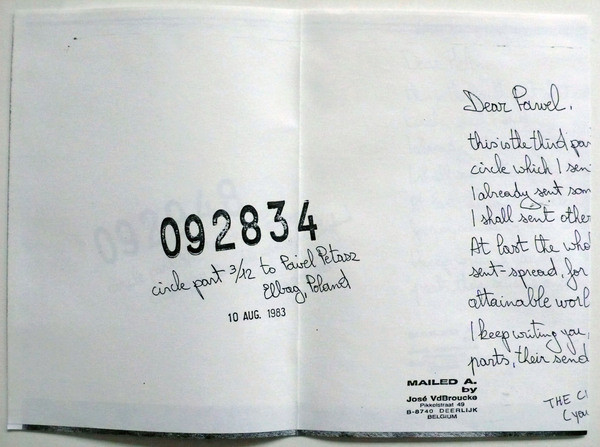 092834
circle part 3/12 to Pawel Petasz
Elbag, Poland
10 AUG. 1983
MAILED A.
by
José VdBroucke
Pikkelstraat 49
B-8740 DEERLIJK
BELGIUM
Dear Pawel,
this is the third par
circle which I sen
I already sent som
I shall sent other
At last the who
sent-spread, for
attainable worl
I keep writing you,
parts, their send
THE CI
(you